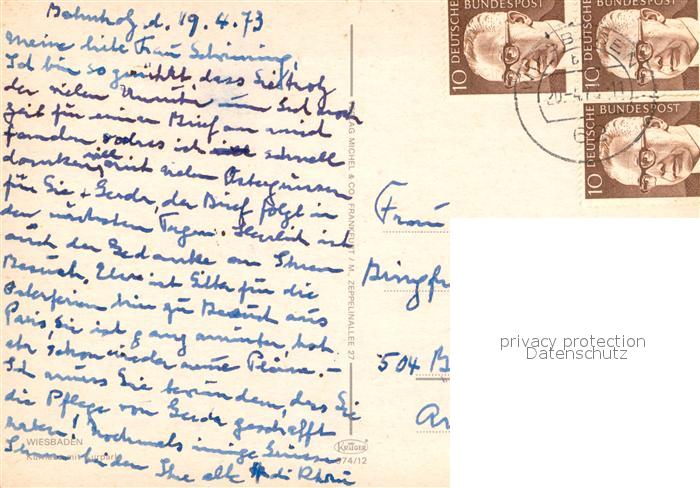 Bahnholz d. 19.4.73
Meine liebe Frau
Ich bin so gerührt dass Sie trotz
der vielen um Sie noch
Zeit für einen Brief an mich
fanden, dass ich schnell
danken will mit vielen Ostergrüssen
für Sie + Gerda, der Brief folgt in
den nächsten Tagen. ist
auch der Gedanke an Ihren
Besuch. ist für die
Osterferien hier zu Besuch aus
Paris, Sie ist ganz munter, hat
schon wieder neue Pläne. –
Ich muss Sie bewundern, dass Sie
die Pflege von Gerda geschafft
haben! Nochmals innige Grüsse
Ihnen beiden Ihre alte
WIESBADEN
Kurhaus mit Kurpark
KRÜGER
974/12
MICHEL & CO., FRANKFURT / M. ZEPPELINALLEE 27
DEUTSCHE BUNDESPOST
10
DEUTSCHE BUNDESPOST
10
DEUTSCHE BUNDESPOST
10
Frau
504 B
privacy protection
Datenschutz